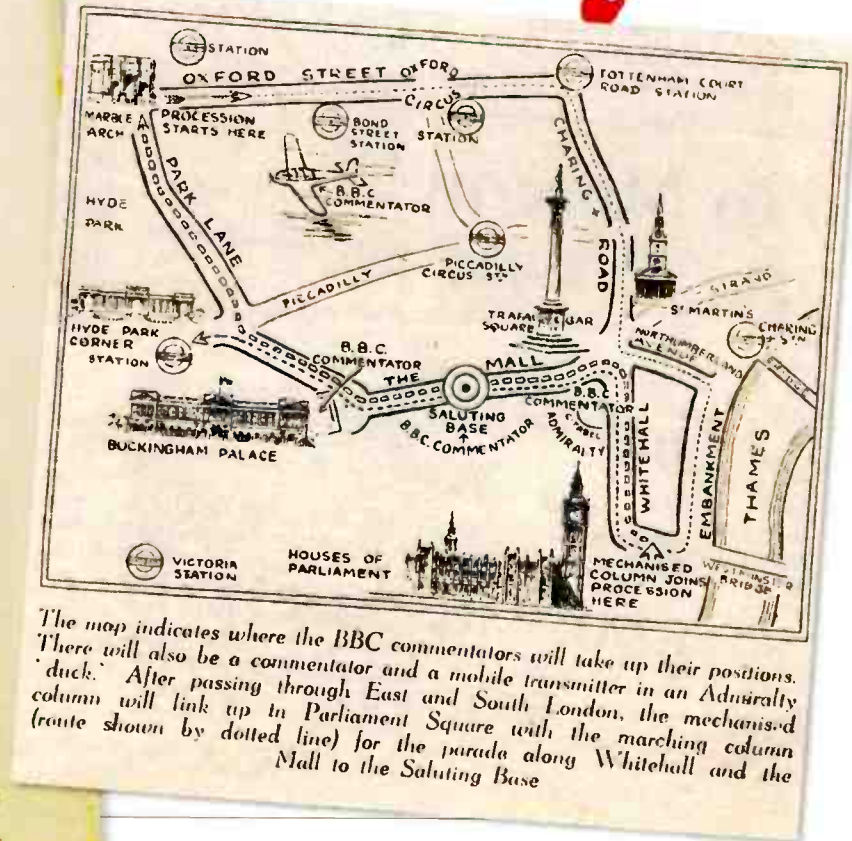 STATION
OXFORD STREET OXFORD
CIRCUS
STATION
TOTTENHAM COURT
ROAD STATION
MARBLE
ARCH
PROCESSION
STARTS HERE
BOND
STREET
STATION
B.B.C
COMMENTATOR
CHARING X
ROAD
HYDE
PARK
PARK LANE
PICCADILLY
PICCADILLY
CIRCUS STN
STRAND
ST MARTIN'S
TRAFALGAR
SQUARE
NORTHUMBERLAND
AVENUE
CHARING
X STN
HYDE PARK
CORNER
STATION
B.B.C.
COMMENTATOR
THE MALL
B.B.C
COMMENTATOR
CITADEL
ADMIRALTY
SALUTING
BASE
B.B.C. COMMENTATOR
BUCKINGHAM PALACE
WHITEHALL
EMBANKMENT
THAMES
BRIDGE
VICTORIA
STATION
HOUSES OF
PARLIAMENT
MECHANISED
COLUMN JOINS
PROCESSION
HERE
WESTMINSTER
BRIDGE
The map indicates where the BBC commentators will take up their positions.
There will also be a commentator and a mobile transmitter in an Admiralty
'duck.' After passing through East and South London, the mechanised
column will link up in Parliament Square with the marching column
(route shown by dotted line) for the parade along Whitehall and the
Mall to the Saluting Base